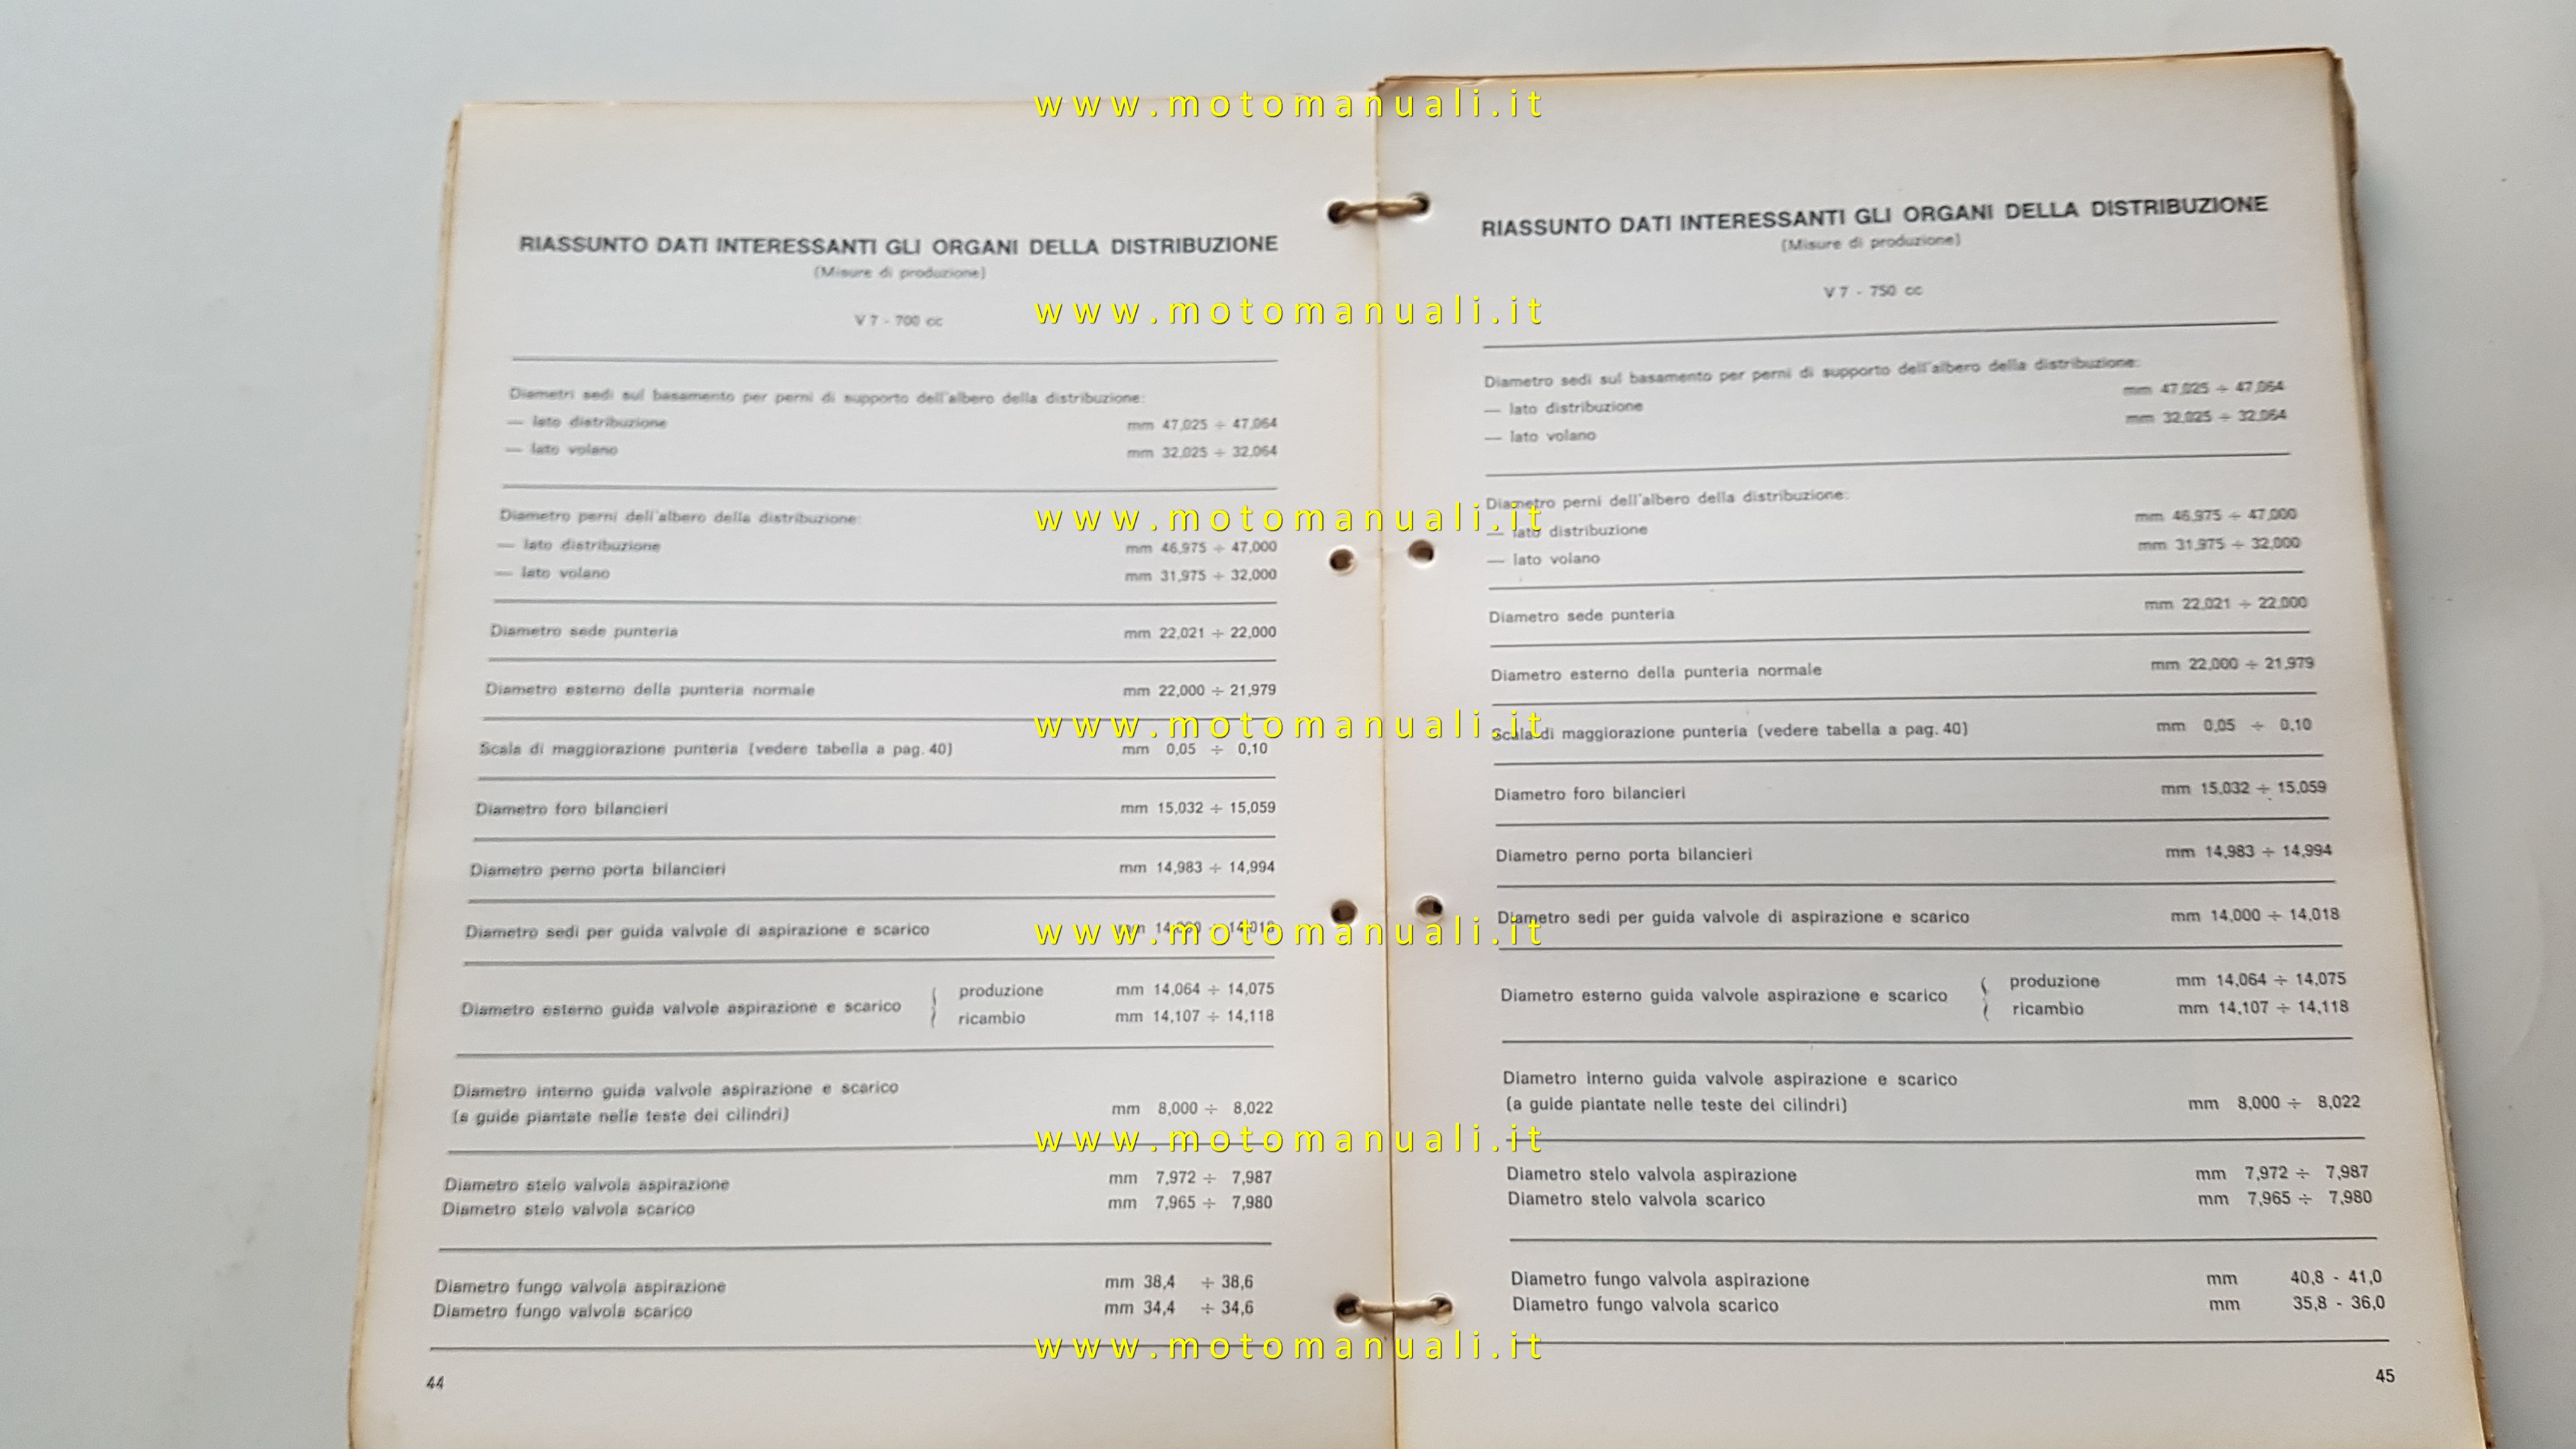 www.motomanuali.it
RIASSUNTO DATI INTERESSANTI GLI ORGANI DELLA DISTRIBUZIONE
(Misure di produzione)
V 7 - 700 cc
Diametri sedi sul basamento per perni di supporto dell'albero della distribuzione:
— lato distribuzione mm 47,025 ÷ 47,064
— lato volano mm 32,025 ÷ 32,064
Diametro perni dell'albero della distribuzione:
— lato distribuzione mm 46,975 ÷ 47,000
— lato volano mm 31,975 ÷ 32,000
Diametro sede punteria mm 22,021 ÷ 22,000
Diametro esterno della punteria normale mm 22,000 ÷ 21,979
Scala di maggiorazione punteria (vedere tabella a pag. 40) mm 0,05 ÷ 0,10
Diametro foro bilancieri mm 15,032 ÷ 15,059
Diametro perno porta bilancieri mm 14,983 ÷ 14,994
Diametro sedi per guida valvole di aspirazione e scarico
Diametro esterno guida valvole aspirazione e scarico { produzione mm 14,064 ÷ 14,075
ricambio mm 14,107 ÷ 14,118
Diametro interno guida valvole aspirazione e scarico
(a guide piantate nelle teste dei cilindri) mm 8,000 ÷ 8,022
Diametro stelo valvola aspirazione mm 7,972 ÷ 7,987
Diametro stelo valvola scarico mm 7,965 ÷ 7,980
Diametro fungo valvola aspirazione mm 38,4 ÷ 38,6
Diametro fungo valvola scarico mm 34,4 ÷ 34,6
44
RIASSUNTO DATI INTERESSANTI GLI ORGANI DELLA DISTRIBUZIONE
(Misure di produzione)
V 7 - 750 cc
Diametro sedi sul basamento per perni di supporto dell'albero della distribuzione:
— lato distribuzione mm 47,025 ÷ 47,064
— lato volano mm 32,025 ÷ 32,064
Diametro perni dell'albero della distribuzione:
— lato distribuzione mm 46,975 ÷ 47,000
— lato volano mm 31,975 ÷ 32,000
Diametro sede punteria mm 22,021 ÷ 22,000
Diametro esterno della punteria normale mm 22,000 ÷ 21,979
Scala di maggiorazione punteria (vedere tabella a pag. 40) mm 0,05 ÷ 0,10
Diametro foro bilancieri mm 15,032 ÷ 15,059
Diametro perno porta bilancieri mm 14,983 ÷ 14,994
Diametro sedi per guida valvole di aspirazione e scarico mm 14,000 ÷ 14,018
Diametro esterno guida valvole aspirazione e scarico { produzione mm 14,064 ÷ 14,075
ricambio mm 14,107 ÷ 14,118
Diametro interno guida valvole aspirazione e scarico
(a guide piantate nelle teste dei cilindri) mm 8,000 ÷ 8,022
Diametro stelo valvola aspirazione mm 7,972 ÷ 7,987
Diametro stelo valvola scarico mm 7,965 ÷ 7,980
Diametro fungo valvola aspirazione mm 40,8 - 41,0
Diametro fungo valvola scarico mm 35,8 - 36,0
45
www.motomanuali.it
www.motomanuali.it
www.motomanuali.it
www.motomanuali.it
www.motomanuali.it
www.motomanuali.it